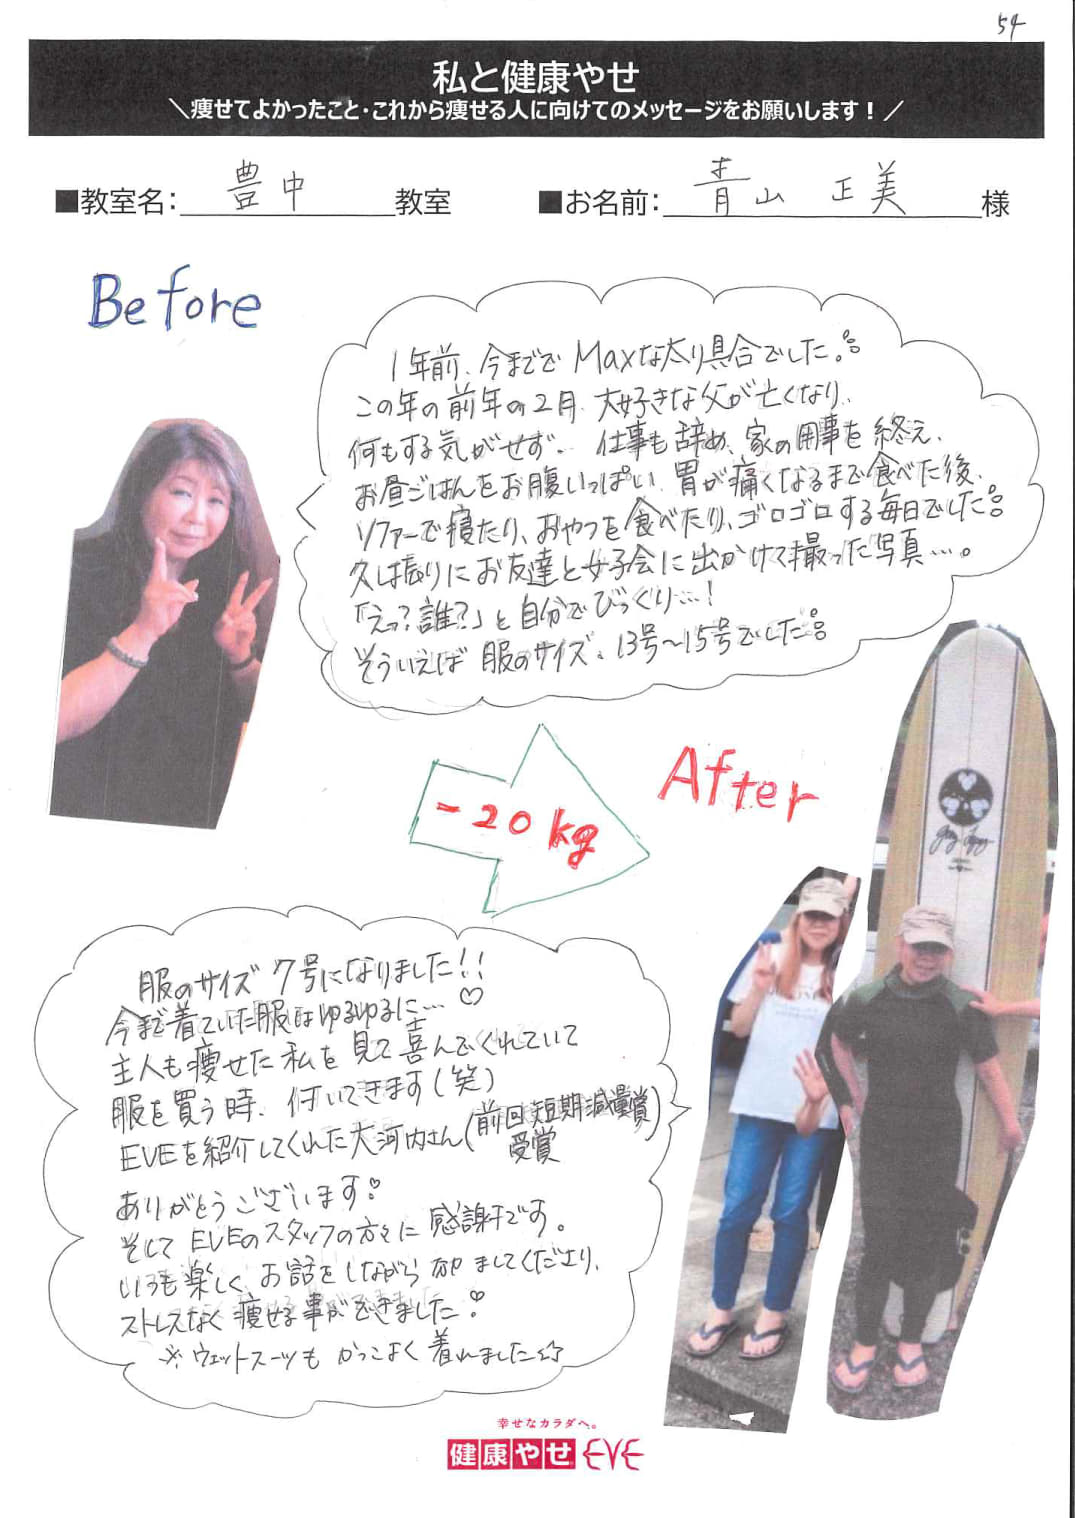 54
私と健康やせ
＼痩せてよかったこと・これから痩せる人に向けてのメッセージをお願いします！／
■教室名：豊中教室
■お名前：青山 正美様
Before
1年前、今までで Maxな太り具合でした。
この年の前年の2月、大好きな父が亡くなり、
何もする気がせず、仕事も辞め、家の用事を終え、
お昼ごはんをお腹いっぱい、胃が痛くなるまで食べた後、
ソファーで寝たり、おやつを食べたり、ゴロゴロする毎日でした。
久し振りにお友達と女子会に出かけて撮った写真…。
「えっ？誰？」と自分でびっくり…！
そういえば 服のサイズ、13号～15号でした。
-20kg
After
服のサイズ 7号になりました!!
今まで着ていた服はゆるゆるに…♡
主人も痩せた私を見て喜んでくれていて
服を買う時、付いてきます(笑)
EVEを紹介してくれた大河内さん(前回短期減量賞受賞)
ありがとうございます♡
そして EVEのスタッフの方々に感謝です。
いつも楽しく、お話をしながら励ましてくださり、
ストレスなく痩せる事ができました♡
※ウェットスーツも かっこよく着れました☆
Greg Liddle
幸せなカラダへ。
健康やせ EVE